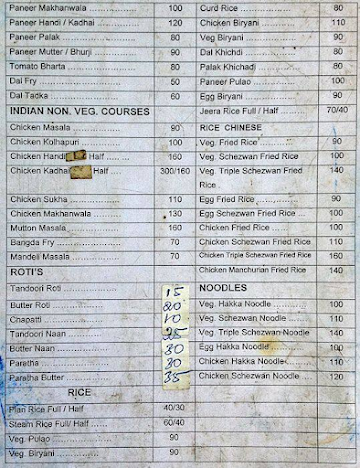 Paneer Makhanwala 100
Paneer Handi / Kadhai 120
Paneer Palak 80
Paneer Mutter / Bhurji 90
Tomato Bharta 80
Dal Fry 50
Dal Tadka 60
INDIAN NON. VEG. COURSES
Chicken Masala 90
Chicken Kolhapuri 100
Chicken Handi Half 160
Chicken Kadhai Half 300/160
Chicken Sukha 110
Chicken Makhanwala 130
Mutton Masala 160
Bangda Fry 70
Mandeli Masala 70
ROTI'S
Tandoori Roti 15
Butter Roti 20
Chapatti 10
Tandoori Naan 25
Butter Naan 30
Paretha 30
Paratha Butter 35
RICE
Plan Rice Full / Half 40/30
Steam Rice Full/ Half 60/40
Veg. Pulao 90
Veg. Biryani 90
Curd Rice 80
Chicken Biryani 110
Veg Biryani 90
Dal Khichdi 80
Palak Khichadi 80
Paneer Pulao 100
Egg Biryani 90
Jeera Rice Full / Half 70/40
RICE CHINESE
Veg. Fried Rice 90
Veg. Schezwan Fried Rice 100
Veg. Triple Schezwan Fried 140
Rice
Egg Fried Rice 90
Egg Schezwan Fried Rice 100
Chicken Fried Rice 100
Chicken Schezwan Fried Rice 110
Chicken Triple Schezwan Fried Rice 160
Chicken Manchurian Fried Rice 140
NOODLES
Veg. Hakka Noodle 100
Veg. Schezwan Noodle 110
Veg. Triple Schezwan Noodle 140
Egg Hakka Noodle 100
Chicken Hakka Noodle 110
Chicken Schezwan Noodle 120